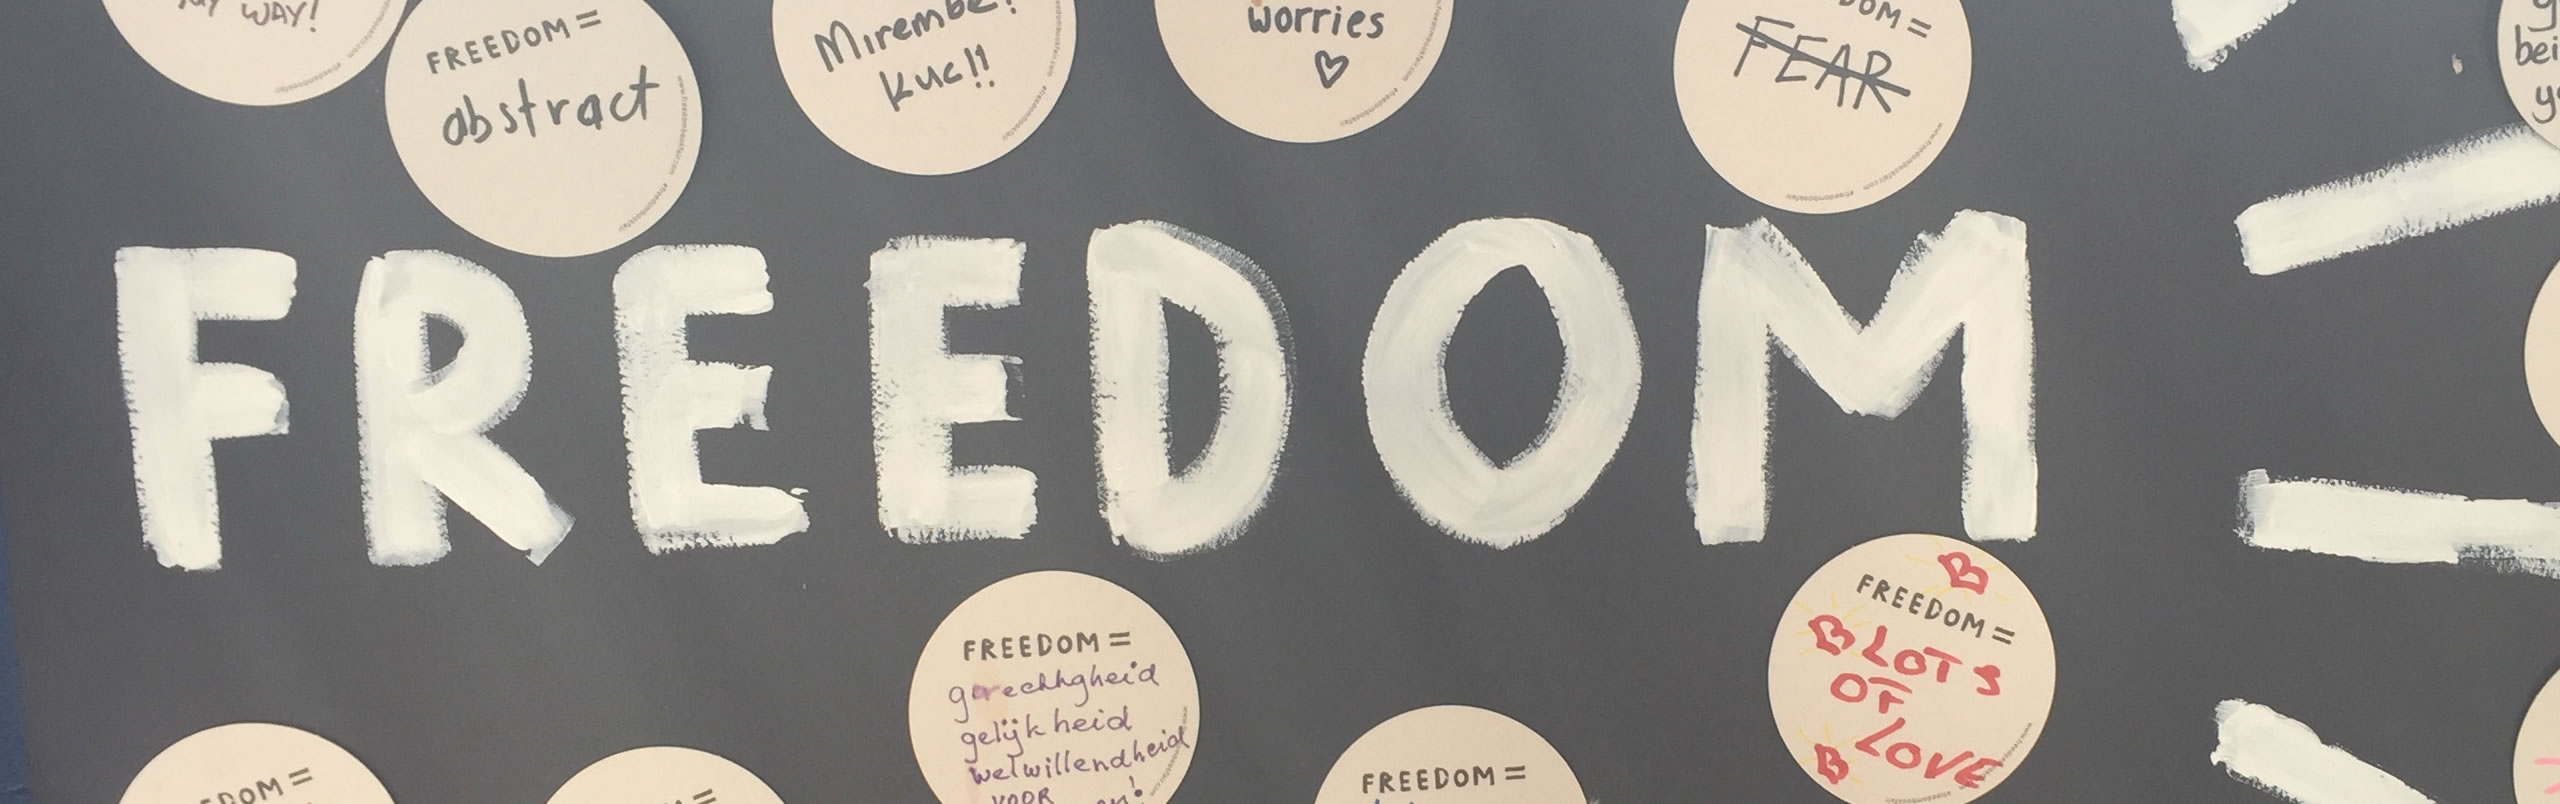 WAY!
FREEDOM =
abstract
Mirembe!
kuc!!
worries
FEAR
bei
FREEDOM
FREEDOM =
gerechtigheid
gelijkheid
welwillendheid
VOOR
FREEDOM =
LOTS
OF
LOVE
FREEDOM =